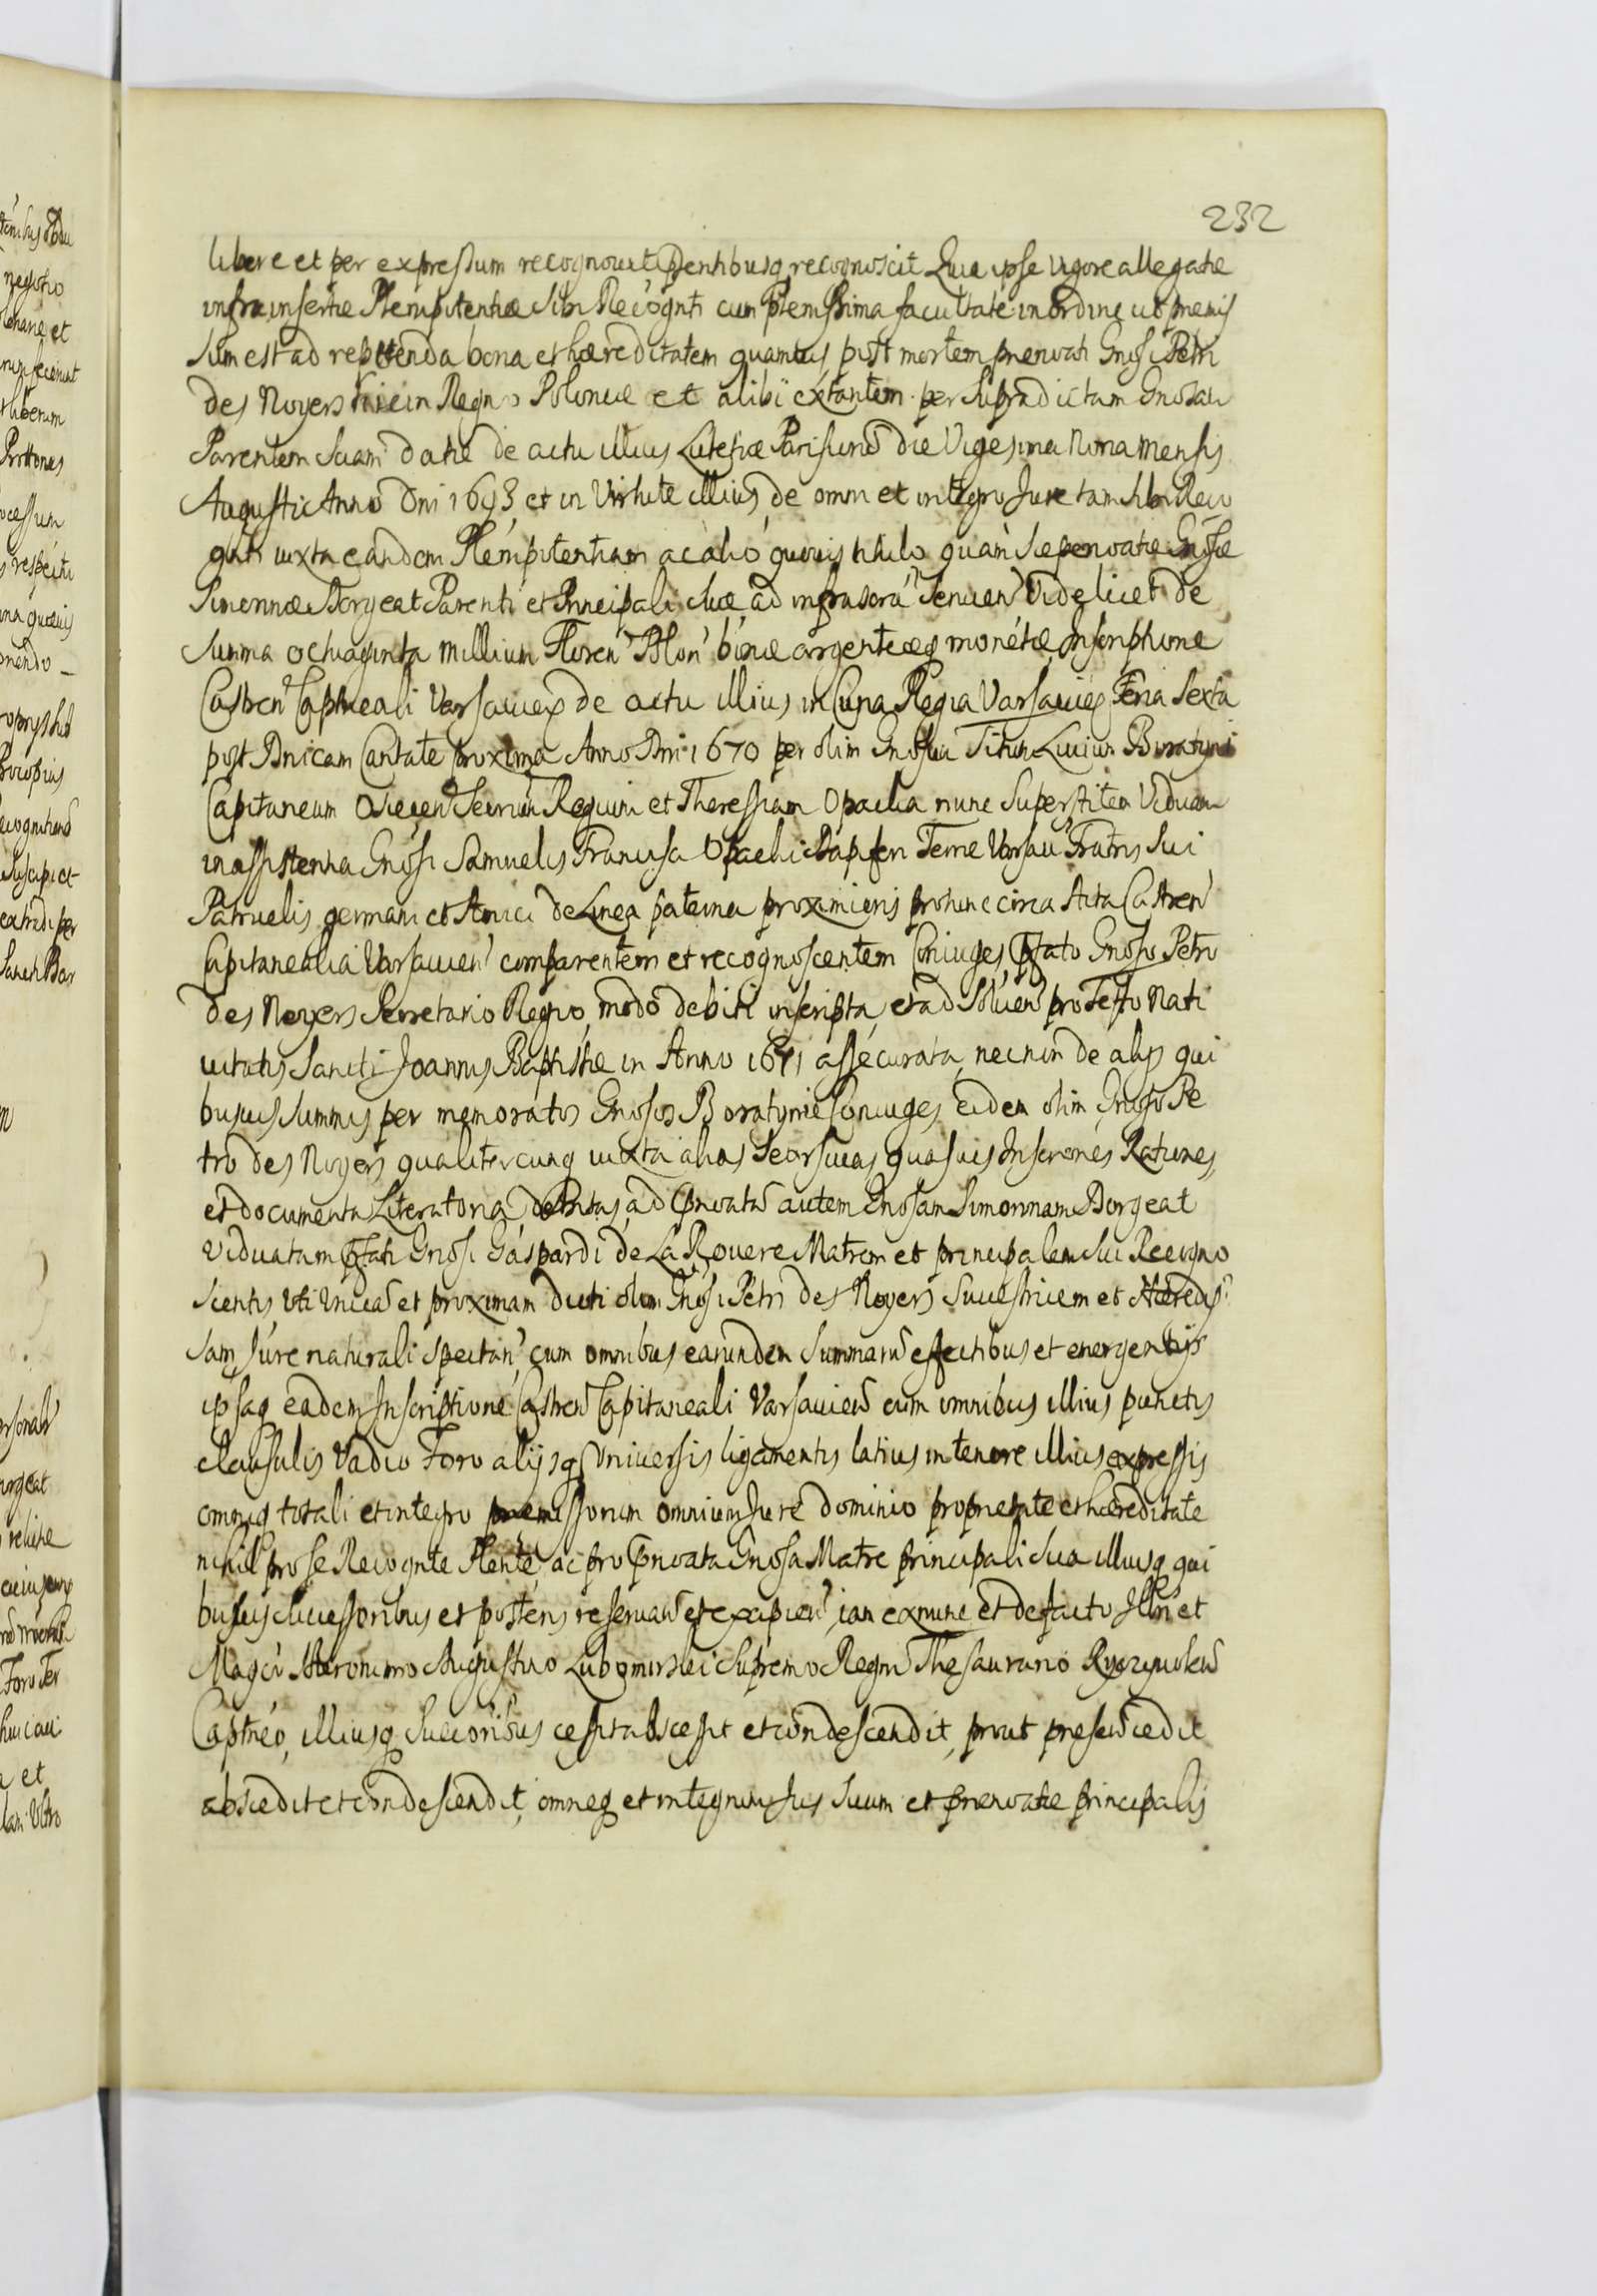 232
libere et per expressum recognovit pntibusq recognoscit Quia ipse vigore allegatæ
infra insertæ Plenipotentiæ sibi Recognti cum plenissima facultate in ordine ut premis
sum est ad repetenda bona et hæreditatem quamvis post mortem prænoati Gnosi Petri
des Noyers sive in Regno Poloniæ et alibi extantem per supradictam Gnosam
Parentem suam datæ de actu illius Lutetiæ Parisiorũ die Vigesima Nona Mensis
Augusti Anno Dni 1693 et in Virtute illius, de omni et integro Jure tam sibi Reco
gnti iuxta eandem Plenipotentiam ac alio quovis titulo quam sæpenoatæ Gnosæ
Simonnæ Borgeat Parenti et Principali suæ ad infrascra servien Videlicet de
Summa octuaginta millium Floren Polon bonæ argenteæq monetæ Inscriptione
Castren Captneali Varsavien de actu illius in Curia Regia Varsavien Feria Sexta
post Dnicam Cantate proxima Anno Dni 1670 per olim Gnosum Titum Livium Boratyni
Capitaneum Osiecen Secrium Regium et Theressiam Opacka nunc Superstitem Viduam
in assistentia Gnosi Samuelis Francisci Opacki Dapiferi Terræ Varsav Fratris sui
Patruelis germani et Amici de Linea paterna proximioris protunc circa Acta Castren
Capitanealia Varsavien comparentem et recognoscentem Coniuges, pfato Gnoso Petro
des Noyers Secretario Regio, modo debiti inscripta, et ad solven pro Festo Nati
vitatis Sancti Joannis Baptistæ in Anno 1671 assecurata, necnon de alijs qui
busvis summis per memoratos Gnosos Boratynie Coniuges, eidem olim Gnoso Pe
tro des Noyers qualitercunq iuxta alias seorsivas quasvis Inscrones Rationes,
et documenta Literatoria debitas, ad pnoatã autem Gnosam Simonnam Borgeat
Viduatam pfati Gnosi Gaspardi de La Rouere Matrem et principalem sui Recogno
scentis, uti unicã et proximam dicti olim Gnosi Petri des Noyers Successricem et Hæredis
sam Jure naturali spectan, cum omnibus earundem summarũ effectibus et emergentijs
ipsaq eadem Inscriptione Castren Capitaneali Varsavien cum omnibus illius punctis
clausulis Vadio Foro alijsq Universis ligamentis latius in tenore illius expressis
omniq totali et integro præmissorum omnium Jure dominio proprietate et hæreditate
nihil pro se Recognte Plente, ac pro pnoata Gnosa Matre principali sua illiusq qui
busvis successoribus et posteris reservan et excipien, iam exnunc et defacto Illri et
Magco Hieronimo Augustino Lubomirski Supremo Regni Thesaurario Ryczywolen
Captneo, illiusq succoribus cessit abscessit et condescendit, prout presen cedit
abscedit et condescendit, omneq et integrum Jus suum et prænoatæ principalis